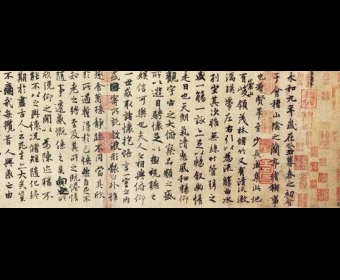 永和九年歲在癸丑暮春之初會
于會稽山陰之蘭亭脩稧事
也群賢畢至少長咸集此地
有崇山峻領茂林脩竹又有清流激
湍暎帶左右引以為流觴曲水
列坐其次雖無絲竹管弦之
盛一觴一詠亦足以暢敘幽情
是日也天朗氣清惠風和暢仰
觀宇宙之大俯察品類之盛
所以遊目騁懷足以極視聽之
娛信可樂也夫人之相與俯仰
一世或取諸懷抱悟言一室之內
或因寄所託放浪形骸之外雖
趣舍萬殊靜躁不同當其欣
於所遇蹔得於己怏然自足不
知老之將至及其所之既惓情
隨事遷感慨係之矣向之所
欣俛仰之間以為陳跡猶不
能不以之興懷況脩短隨化終
期於盡古人云死生亦大矣豈
不痛哉每攬昔人興感之由